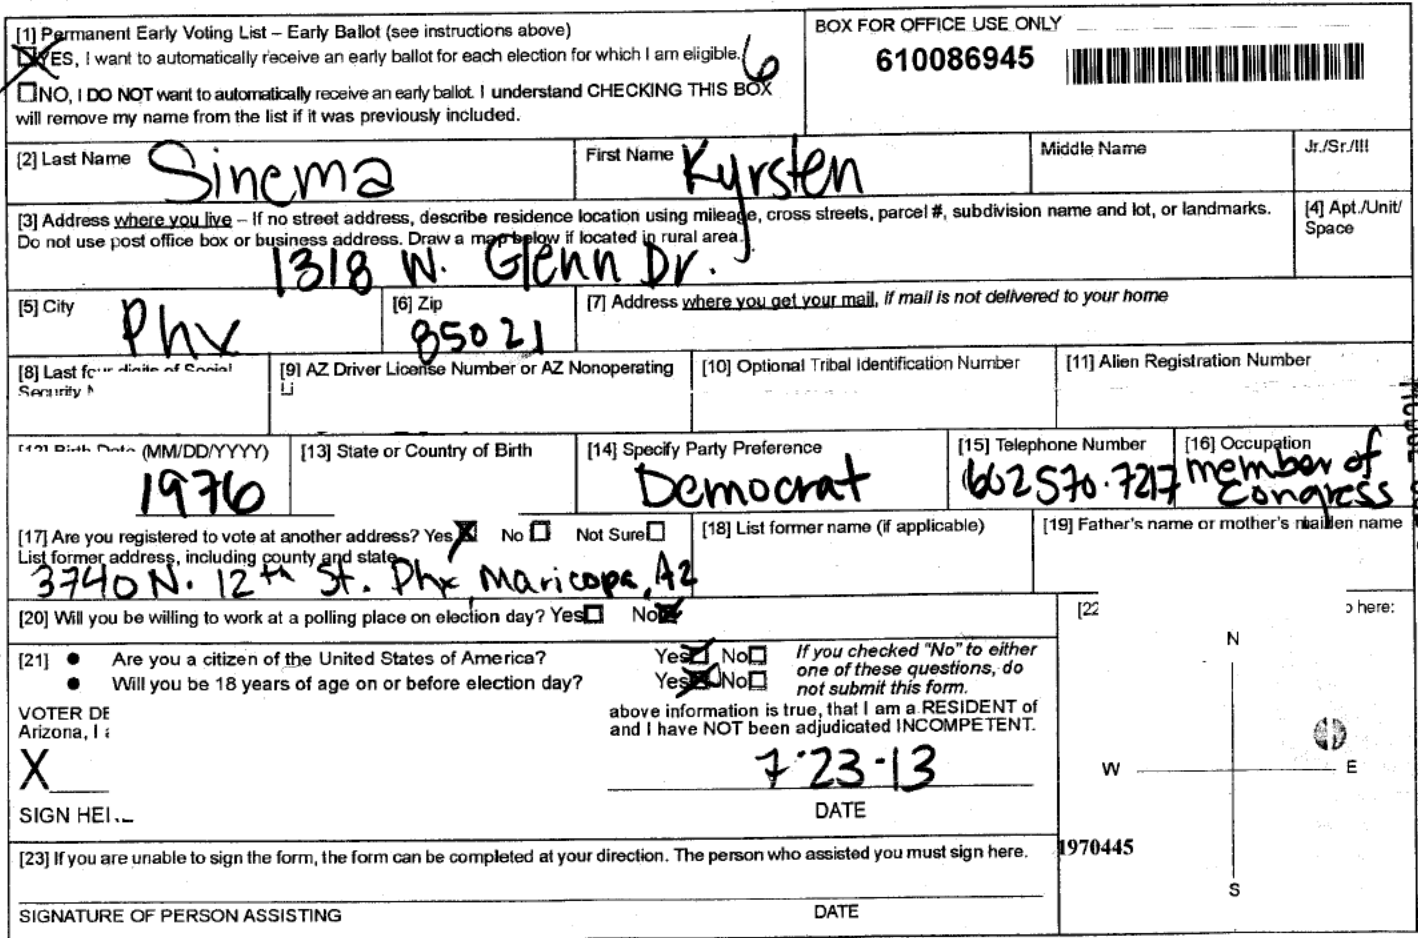 [1] Permanent Early Voting List – Early Ballot (see instructions above)
YES, I want to automatically receive an early ballot for each election for which I am eligible.
6
NO, I DO NOT want to automatically receive an early ballot. I understand CHECKING THIS BOX
will remove my name from the list if it was previously included.
BOX FOR OFFICE USE ONLY
610086945
[2] Last Name Sinema
First Name Kyrsten
Middle Name
Jr./Sr./III
[3] Address where you live – If no street address, describe residence location using mileage, cross streets, parcel #, subdivision name and lot, or landmarks.
Do not use post office box or business address. Draw a map below if located in rural area.
1318 W. Glenn Dr.
[4] Apt./Unit/
Space
[5] City Phx
[6] Zip
85021
[7] Address where you get your mail, if mail is not delivered to your home
[8] Last four digits of Social
Security
[9] AZ Driver License Number or AZ Nonoperating
Li
[10] Optional Tribal Identification Number
[11] Alien Registration Number
[12] Birth Date (MM/DD/YYYY)
1976
[13] State or Country of Birth
[14] Specify Party Preference
Democrat
[15] Telephone Number
602 570.7217
[16] Occupation
member of
Congress
[17] Are you registered to vote at another address? Yes No Not Sure
List former address, including county and state
3740 N. 12th St. Phx Maricopa, AZ
[18] List former name (if applicable)
[19] Father's name or mother's maiden name
[20] Will you be willing to work at a polling place on election day? Yes No
[21] ● Are you a citizen of the United States of America? Yes No
● Will you be 18 years of age on or before election day? Yes No
If you checked "No" to either
one of these questions, do
not submit this form.
VOTER DE
Arizona, I a
above information is true, that I am a RESIDENT of
and I have NOT been adjudicated INCOMPETENT.
X
7-23-13
SIGN HE
DATE
[22 here:
N
W E
S
1970445
[23] If you are unable to sign the form, the form can be completed at your direction. The person who assisted you must sign here.
SIGNATURE OF PERSON ASSISTING
DATE